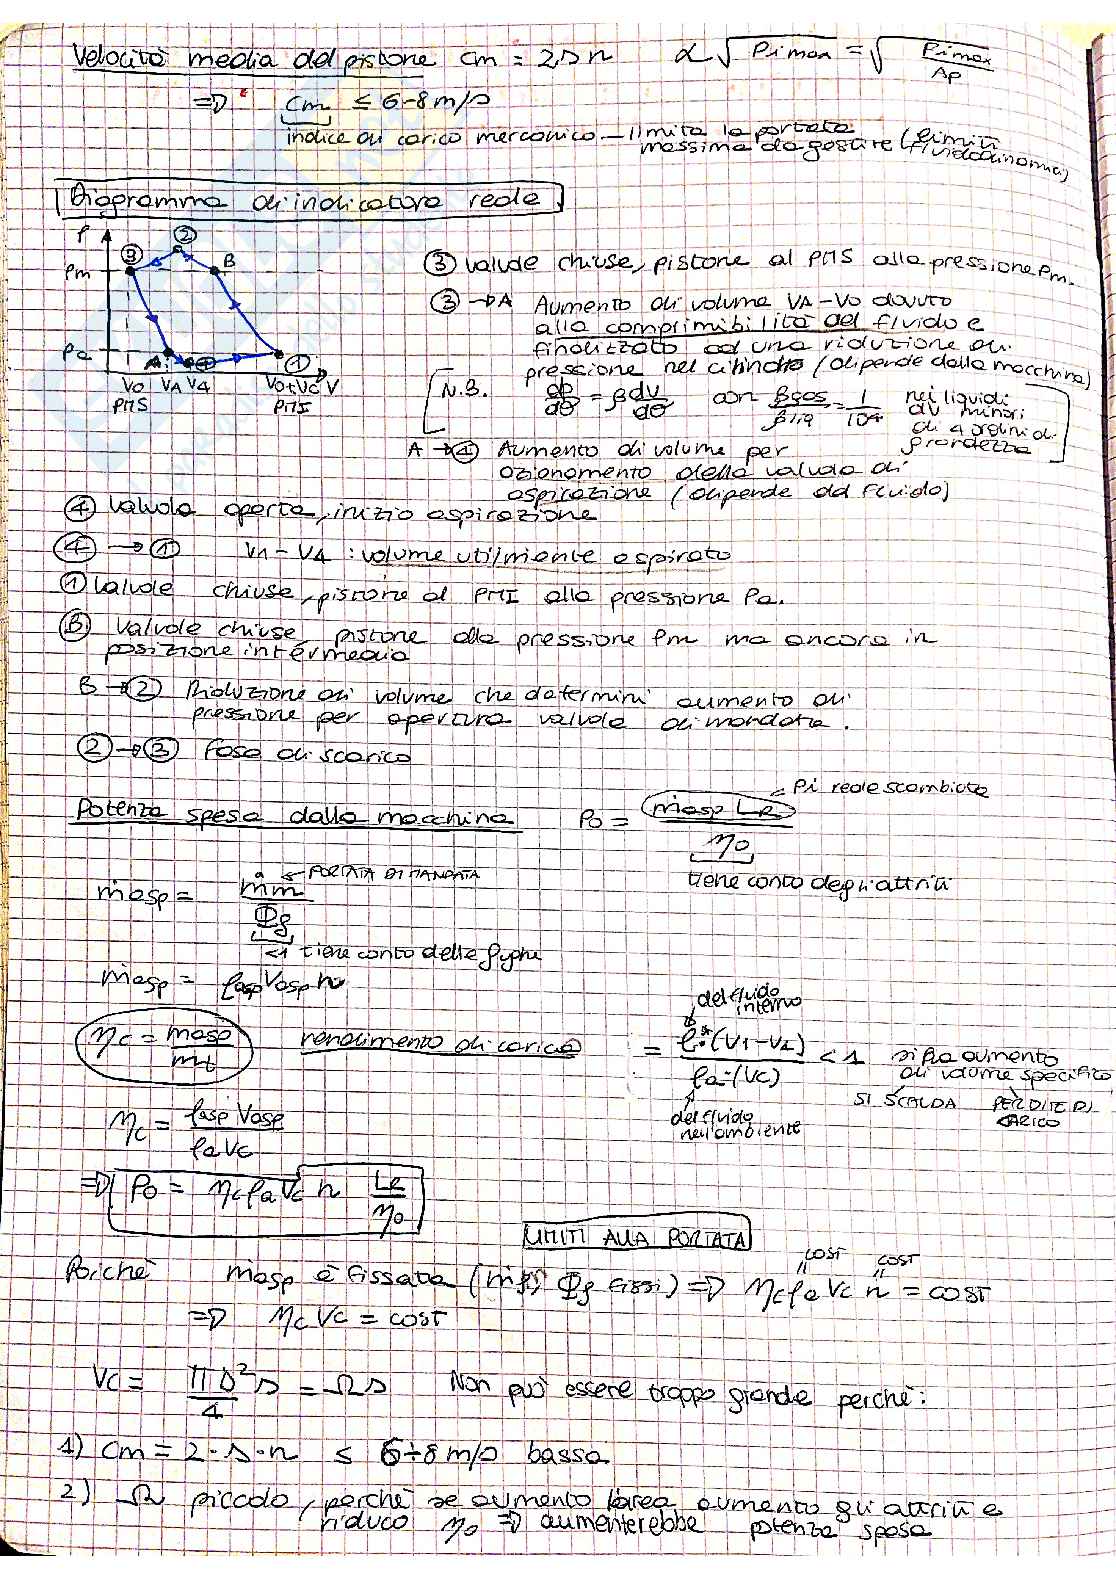 Velocità media del pistone cm = 2sn α √Pimax = √(Pimax/Ap)
=> cm ≤ 6÷8 m/s
indice di carico meccanico – limita la portata
massima da gestire (limiti fluidodinamici)
Diagramma di indicatore reale
③ valvole chiuse, pistone al PMS alla pressione Pm.
③ → A Aumento di volume VA-V0 dovuto
alla comprimibilità del fluido e
finalizzato ad una riduzione di
pressione nel cilindro (dipende dalla macchina)
N.B. dp/dθ = β dv/dθ con βgas/βliq = 1/10⁴ nei liquidi
dv minori
di 4 ordini di
grandezza
A → ④ Aumento di volume per
azionamento della valvola di
aspirazione (dipende dal fluido)
P
Pm
Pa
③ ② B A ④ ①
V0 VA V4 V0+Vc V
PMS PMI
④ valvola aperta, inizio aspirazione
④ → ① V1 - V4 : volume utilmente aspirato
① valvole chiuse, pistone al PMI alla pressione Pa.
Ⓑ valvole chiuse, pistone alla pressione Pm ma ancora in
posizione intermedia
B → ② Riduzione di volume che determini aumento di
pressione per apertura valvola di mandata.
② → ③ fase di scarico
Potenza spesa dalla macchina P0 = ṁasp LR / η0 ← Pi reale scambiata
tiene conto degli attriti
ṁasp = ṁm / Φf ← PORTATA DI MANDATA
<1 tiene conto delle fughe
ṁasp = ρasp Vasp n
ηc = masp/mt rendimento di carico = ρ*·(V1-V4) / ρa·(Vc) < 1 si ha aumento
di volume specifico
del fluido
interno
SI SCALDA PERDITE DI
CARICO
del fluido
nell'ambiente
ηc = ρasp Vasp / ρa Vc
=> P0 = ηc ρa Vc n LR/η0
LIMITI ALLA PORTATA
Poichè masp è fissata ( Φf fissi) => ηc ρa Vc n = cost
COST COST
=> ηc Vc = cost
Vc = πD²s/4 = Ωs Non può essere troppo grande perchè:
1) Cm = 2·s·n ≤ 6÷8 m/s bassa
2) Ω piccola, perchè se aumento l'area aumento gli attriti e
riduco η0 => aumenterebbe potenza spesa